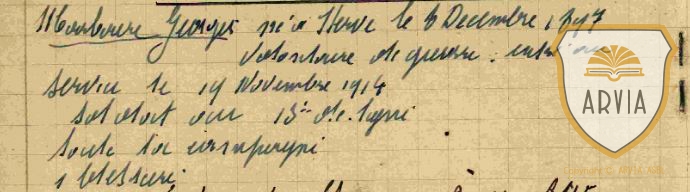 Georges né à Herve le 8 Decembre 1897
Volontaire de guerre. entré au
service le 19 Novembre 1914
soldat au 13è de ligne
toute la campagne
1 blessure
ARVIA